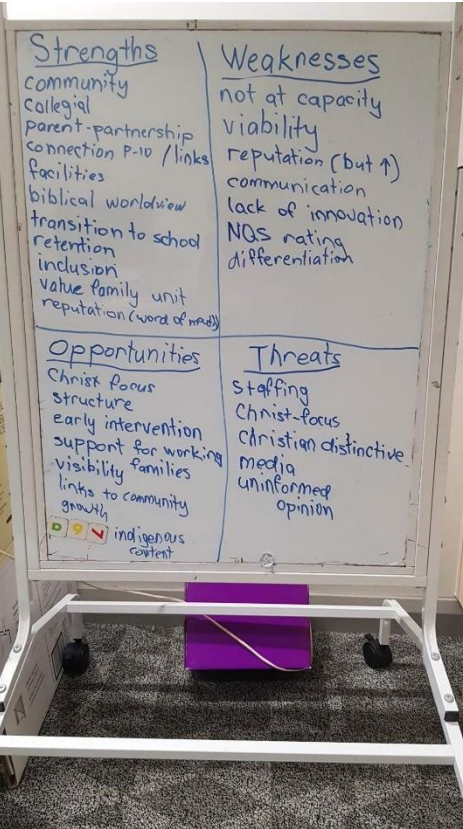 Strengths
community
collegial
parent-partnership
connection P-10 / links
facilities
biblical worldview
transition to school
retention
inclusion
value family unit
reputation (word of mouth)
Weaknesses
not at capacity
viability
reputation (but ↑)
communication
lack of innovation
NQS rating
differentiation
Opportunities
Christ focus
structure
early intervention
support for working
visibility families
links to community
growth
indigenous
content
Threats
staffing
Christ-focus
Christian distinctive
media
uninformed
opinion